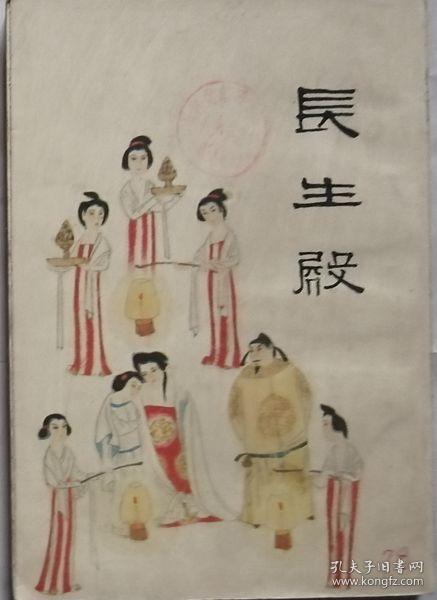 長生殿
孔夫子旧书网
www.kongfz.com